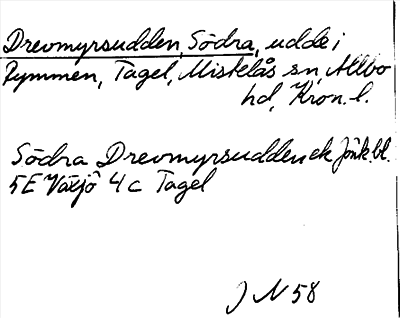 Drevmyrsudden, Södra, udde i
Rymmen, Tagel, Mistelås sn, Allbo
hd, Kron. l.
Södra Drevmyrsudden ek Jönk. bl.
5E Växjö 4c Tagel
J N 58